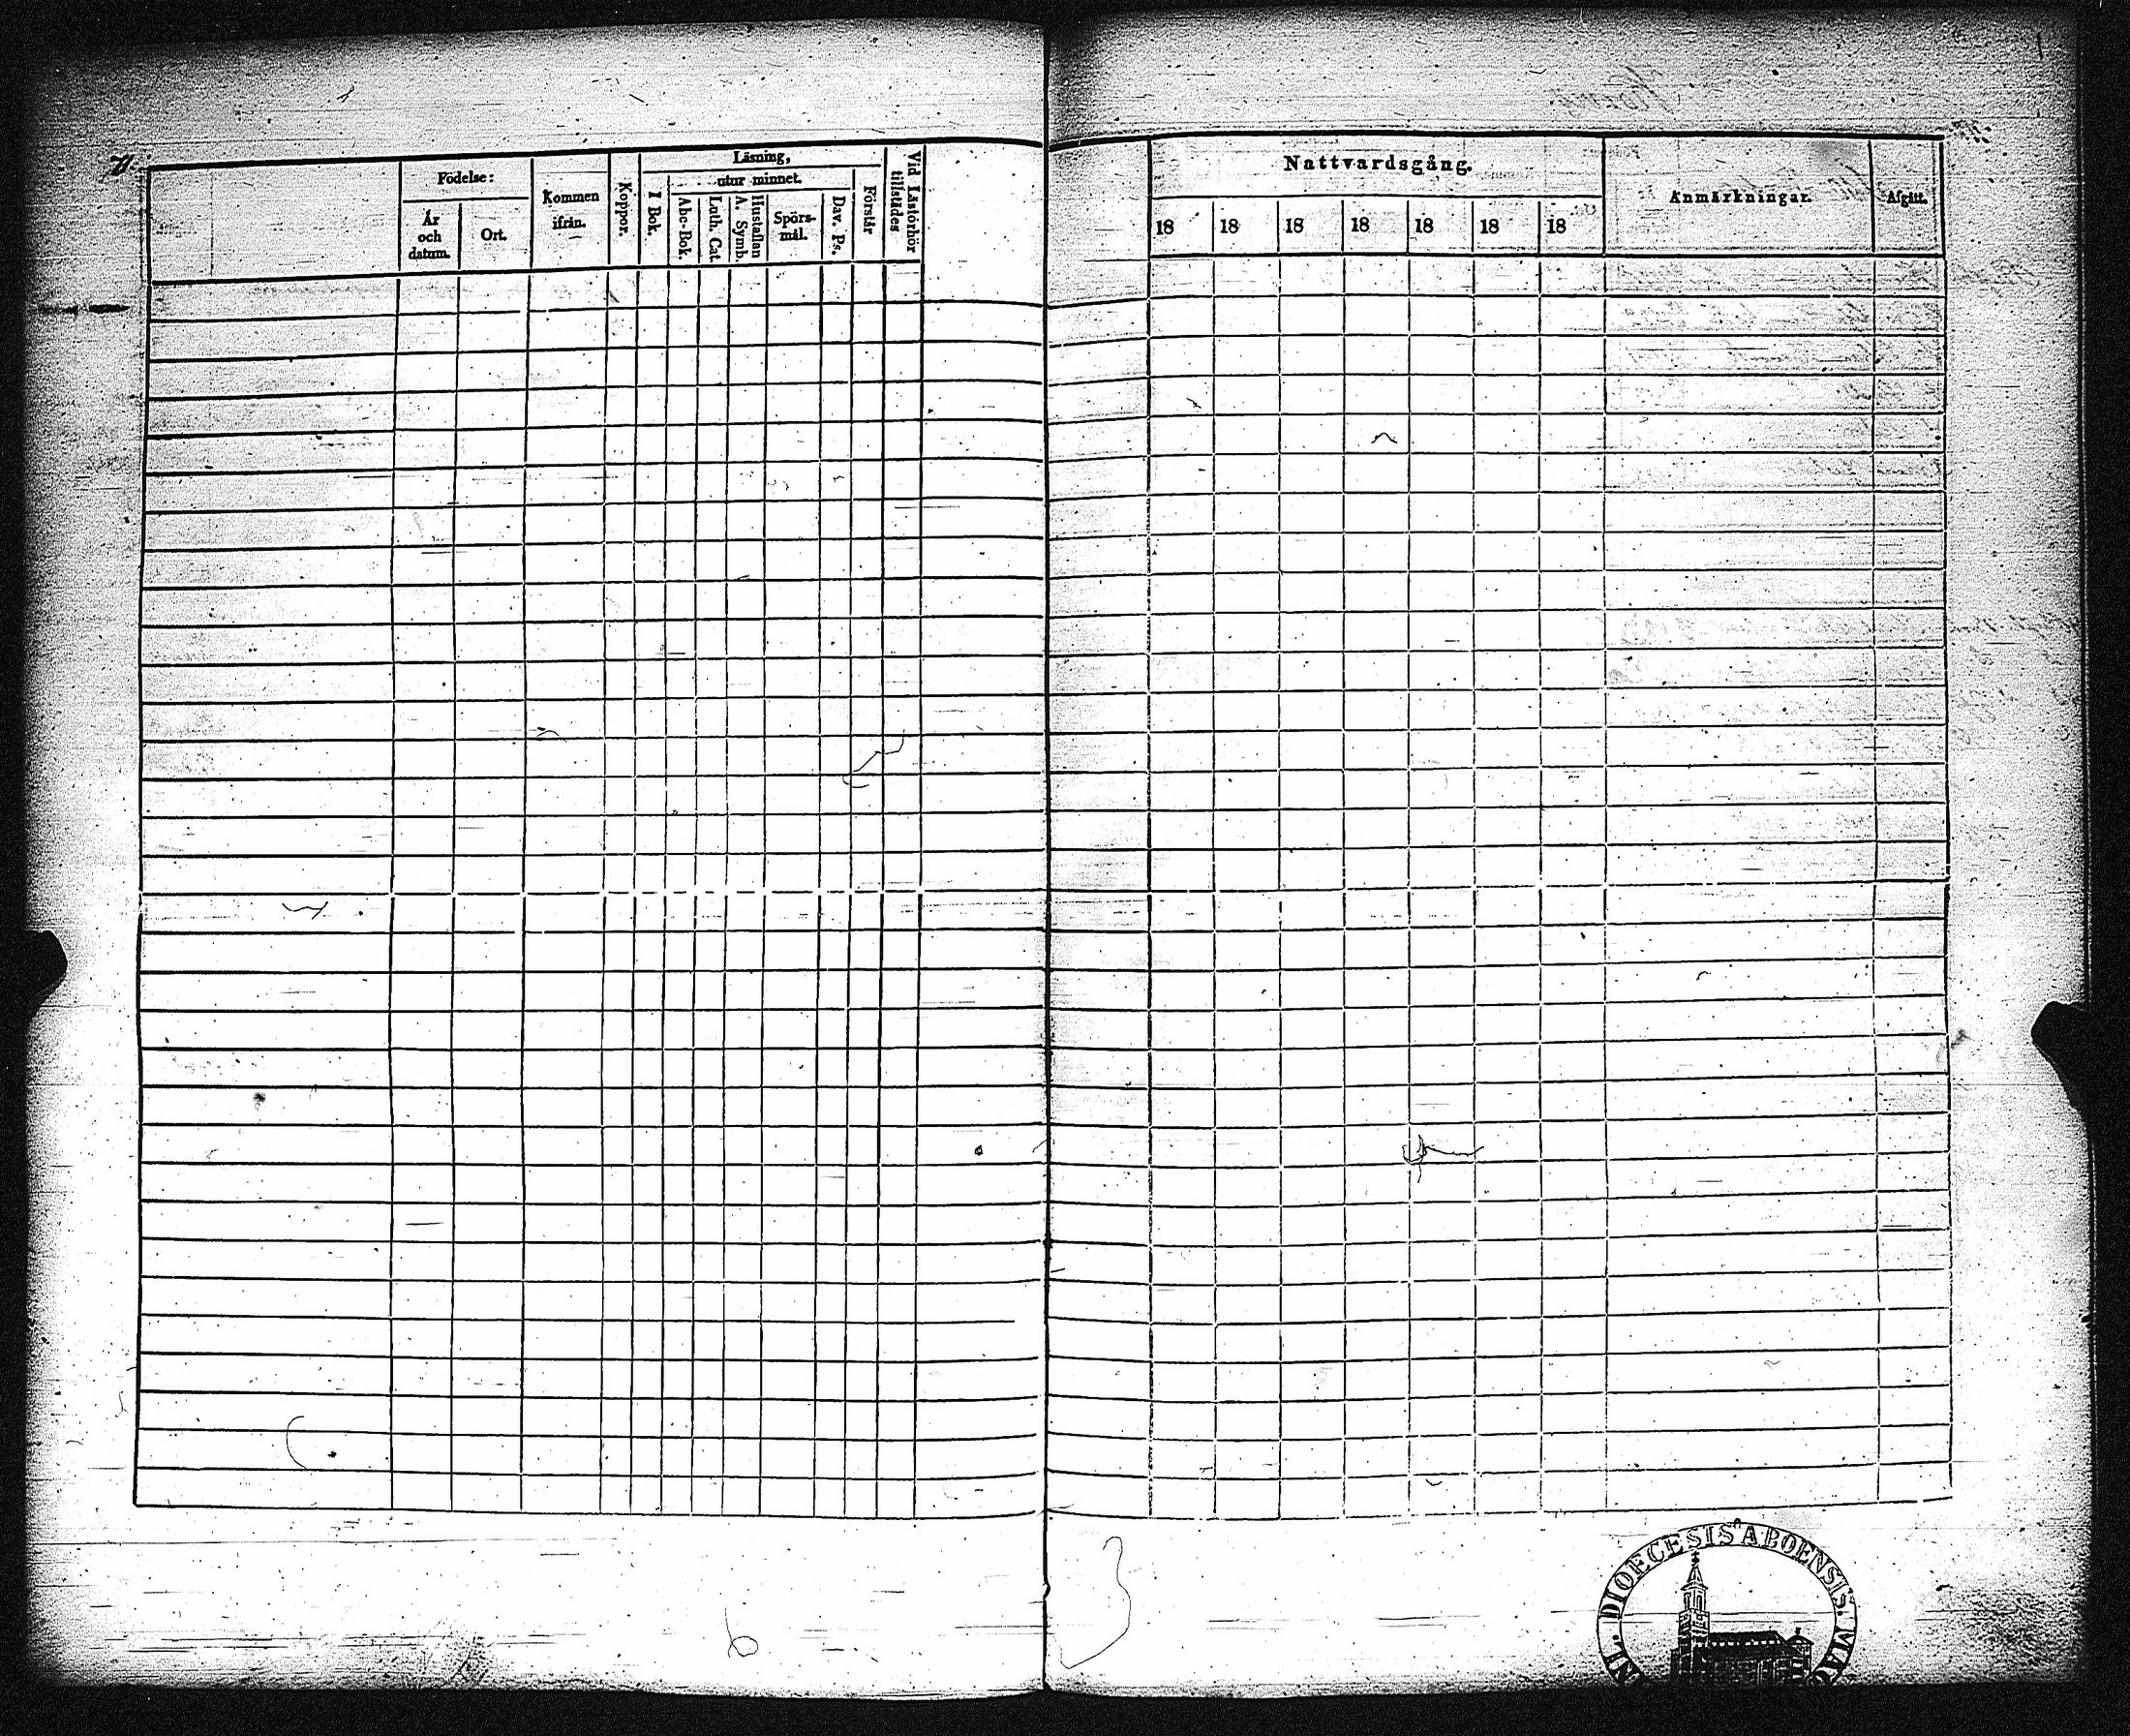 Födelse:
År
och
datum.
Ort.
Kommen
ifrån.
Koppor.
Läsning,
I Bok.
utur minnet.
Abc-Bok.
Luth. Cat.
Hustaflan
A. Symb.
Spörs-
mål.
Dav. Ps.
Förstår
Vid Läsförhör
tillstädes
Nattvardsgång.
18 18 18 18 18 18 18
Anmärkningar.
Afgått.
DIOECESIS ABOENSIS.